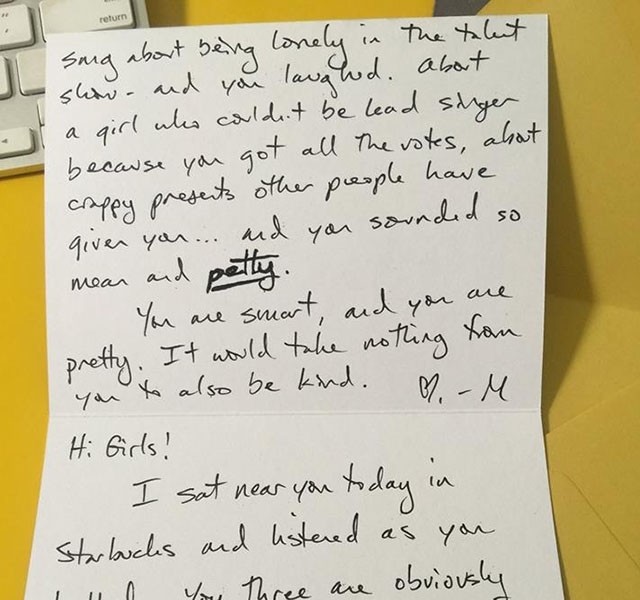 return
sang about being lonely in the talent
show - and you laughed. about
a girl who couldn't be lead singer
because you got all the votes, about
crappy presents other people have
given you... and you sounded so
mean and petty.
You are smart, and you are
pretty. It would take nothing from
you to also be kind. ♡. - M
Hi Girls!
I sat near you today in
Starbucks and listened as you
You three are obviously